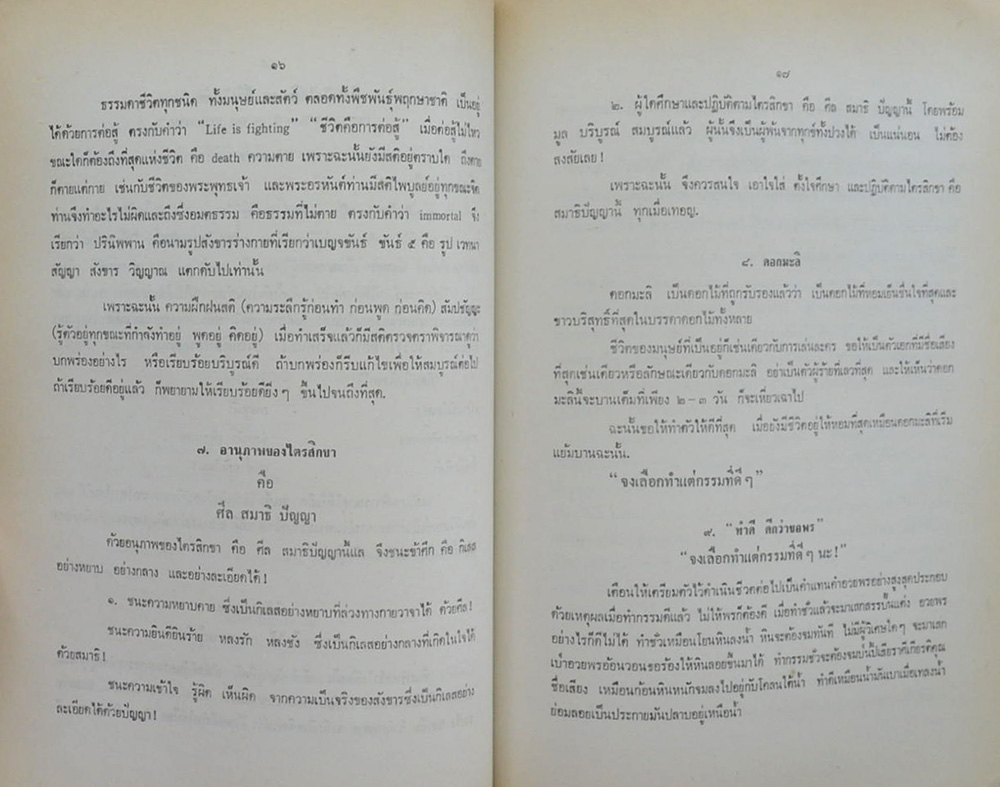 ๑๖
ธรรมดาชีวิตทุกชนิด ทั้งมนุษย์และสัตว์ ตลอดทั้งพืชพันธุ์พฤกษาชาติ เป็นอยู่
ได้ด้วยการต่อสู้ ตรงกับคำว่า “Life is fighting” “ชีวิตคือการต่อสู้” เมื่อต่อสู้ไม่ไหว
ขณะใดก็ต้องถึงที่สุดแห่งชีวิต คือ death ความตาย เพราะฉะนั้นยังมีสติอยู่ตราบใด ถึงตาย
ก็ตายแต่กาย เช่นกับชีวิตของพระพุทธเจ้า และพระอรหันต์ท่านมีสติไพบูลย์อยู่ทุกขณะจิต
ท่านจึงทำอะไรไม่ผิดและถึงซึ่งอมตธรรม คือธรรมที่ไม่ตาย ตรงกับคำว่า immortal จึง
เรียกว่า ปรินิพพาน คือนามรูปสังขารร่างกายที่เรียกว่าเบญจขันธ์ ขันธ์ ๕ คือ รูป เวทนา
สัญญา สังขาร วิญญาณ แตกดับไปเท่านั้น
เพราะฉะนั้น ความฝึกฝนสติ (ความระลึกรู้ก่อนทำ ก่อนพูด ก่อนคิด) สัมปชัญญะ
(รู้ตัวอยู่ทุกขณะที่กำลังทำอยู่ พูดอยู่ คิดอยู่) เมื่อทำเสร็จแล้วก็มีสติตรวจตราพิจารณาดูว่า
บกพร่องอย่างไร หรือเรียบร้อยบริบูรณ์ดี ถ้าบกพร่องก็รีบแก้ไขเพื่อให้สมบูรณ์ต่อไป
ถ้าเรียบร้อยดีอยู่แล้ว ก็พยายามให้เรียบร้อยดียิ่ง ๆ ขึ้นไปจนถึงที่สุด.
๗. อานุภาพของไตรสิกขา
คือ
ศีล สมาธิ ปัญญา
ด้วยอนุภาพของไตรสิกขา คือ ศีล สมาธิปัญญานี้แล จึงชนะข้าศึก คือ กิเลส
อย่างหยาบ อย่างกลาง และอย่างละเอียดได้ !
๑. ชนะความหยาบคาย ซึ่งเป็นกิเลสอย่างหยาบที่ล่วงทางกายวาจาได้ ด้วยศีล !
ชนะความยินดียินร้าย หลงรัก หลงชัง ซึ่งเป็นกิเลสอย่างกลางที่เกิดในใจได้
ด้วยสมาธิ !
ชนะความเข้าใจ รู้ผิด เห็นผิด จากความเป็นจริงของสังขารซึ่งเป็นกิเลสอย่าง
ละเอียดได้ด้วยปัญญา !
๑๗
๒. ผู้ใดศึกษาและปฏิบัติตามไตรสิกขา คือ ศีล สมาธิ ปัญญานี้ โดยพร้อม
มูล บริบูรณ์ สมบูรณ์แล้ว ผู้นั้นจึงเป็นผู้พ้นจากทุกข์ทั้งปวงได้ เป็นแน่นอน ไม่ต้อง
สงสัยเลย !
เพราะฉะนั้น จึงควรสนใจ เอาใจใส่ ตั้งใจศึกษา และปฏิบัติตามไตรสิกขา คือ
สมาธิปัญญานี้ ทุกเมื่อเทอญ.
๘. ดอกมะลิ
ดอกมะลิ เป็นดอกไม้ที่ถูกรับรองแล้วว่า เป็นดอกไม้ที่หอมเย็นชื่นใจที่สุดและ
ขาวบริสุทธิ์ที่สุดในบรรดาดอกไม้ทั้งหลาย
ชีวิตของมนุษย์ที่เป็นอยู่ก็เช่นเดียวกับการเล่นละคร ขอให้เป็นตัวเอกที่มีชื่อเสียง
ที่สุดเช่นเดียวหรือลักษณะเดียวกับดอกมะลิ อย่าเป็นตัวผู้ร้ายที่เลวที่สุด และให้เห็นว่าดอก
มะลินี้จะบานเต็มที่เพียง ๒ – ๓ วัน ก็จะเหี่ยวเฉาไป
ฉะนั้นขอให้ทำตัวให้ดีที่สุด เมื่อยังมีชีวิตอยู่ให้หอมที่สุดเหมือนดอกมะลิที่เริ่ม
แย้มบานฉะนั้น.
“จงเลือกทำแต่กรรมที่ดี ๆ”
๙. “ทำดี ดีกว่าขอพร”
“จงเลือกทำแต่กรรมที่ดี ๆ นะ !”
เตือนให้เตรียมตัวไว้ดำเนินชีวตต่อไปเป็นคำแทนคำอวยพรอย่างสูงสุดประกอบ
ด้วยเหตุผลเมื่อทำกรรมดีแล้ว ไม่ให้พรก็ต้องดี เมื่อทำชั่วแล้วจะมาเสกสรรปั้นแต่ง อวยพร
อย่างไรก็ดีไม่ได้ ทำชั่วเหมือนโยนหินลงน้ำ หินจะต้องจมทันที ไม่มีผู้วิเศษใด ๆ จะมาเสก
เป่าอวยพรอ้อนวอนขอร้องให้หินลอยขึ้นมาได้ ทำกรรมชั่วจะต้องจมป่นปี้เสียราศีเกียรติคุณ
ชื่อเสียง เหมือนก้อนหินหนักจมลงไปอยู่กับโคลนใต้น้ำ ทำดีเหมือนน้ำมันเบาเมื่อเทลงน้ำ
ย่อมลอยเป็นประกายมันปลาบอยู่เหนือน้ำ